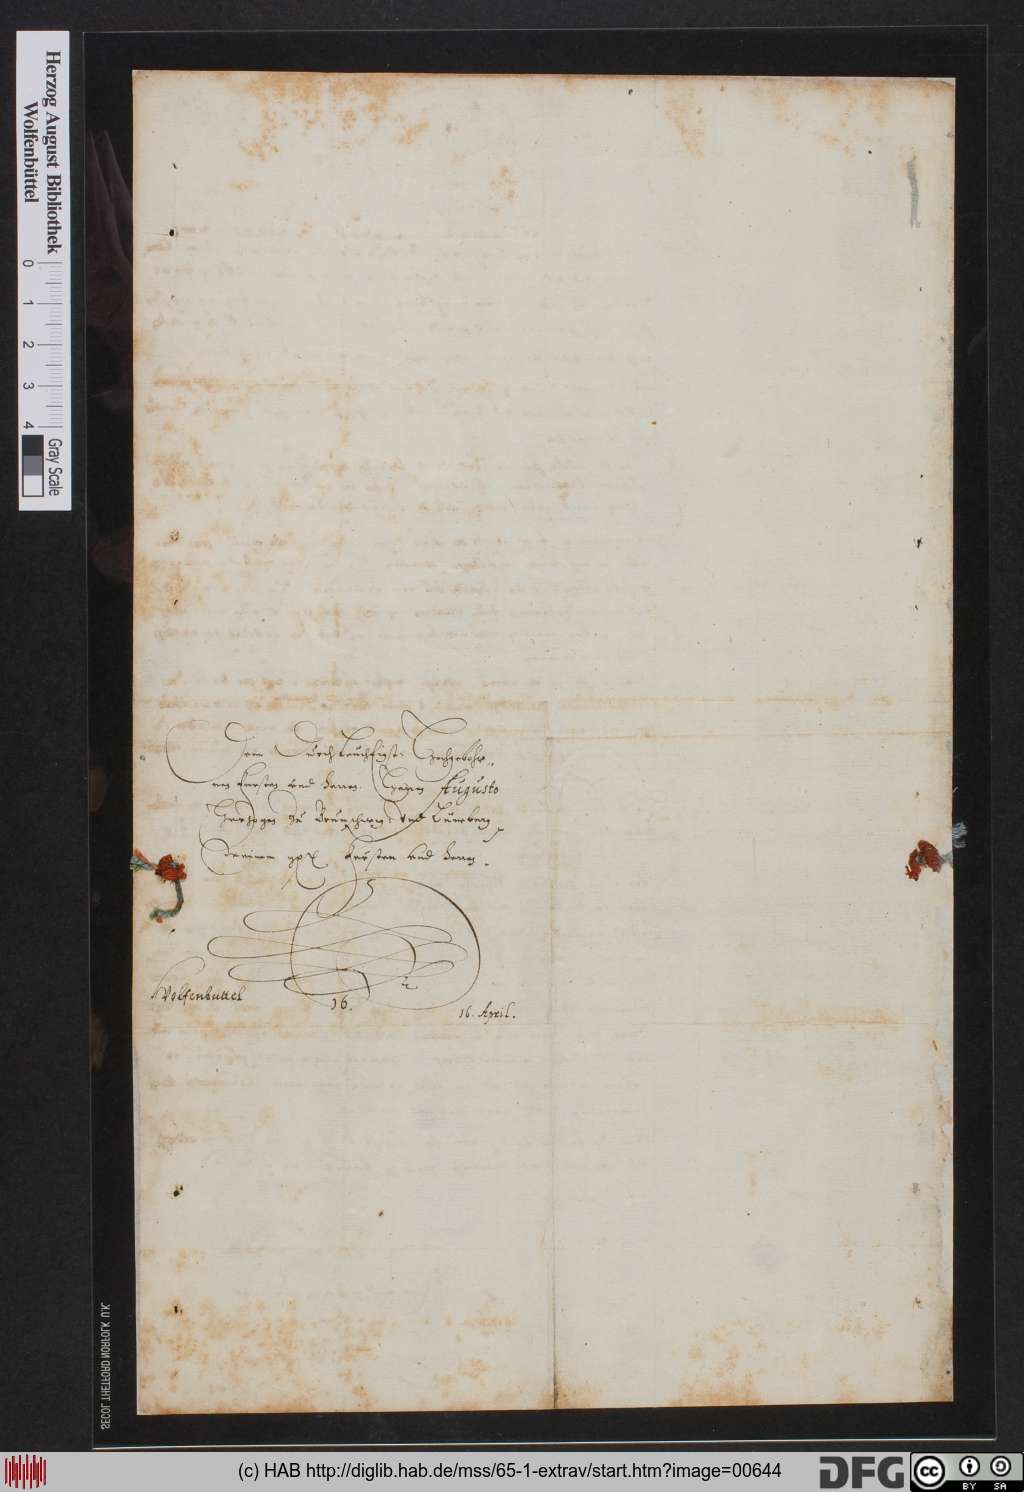 Herzog August Bibliothek
Wolfenbüttel
0 1 2 3 4
Gray Scale
Dem Durchleuchtigst: Hochgebohr„
nen Fursten vnd Herren. Herren Augusto
Hertzogen Zu Braunschweig: vnd Luneburg
Meinem Fursten vnd Herren.
Wolfenbuttel
16.
16. April.
SECOL THETFORD NORFOLK U.K.
(c) HAB http://diglib.hab.de/mss/65-1-extrav/start.htm?image=00644
DFG
cc BY SA